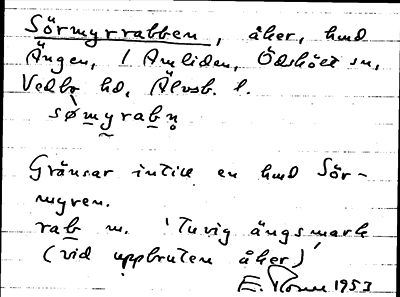 Sörmyrrabben, åker, hmd
Ängen, 1 Amliden, Ödskölt sn,
Vedbo hd, Älvsb. l.
sømyrabn̥
Gränsar intill en hmd Sör-
myren.
rab m. 'Tuvig ängsmark
(vid uppbruten åker)'
E. 1953